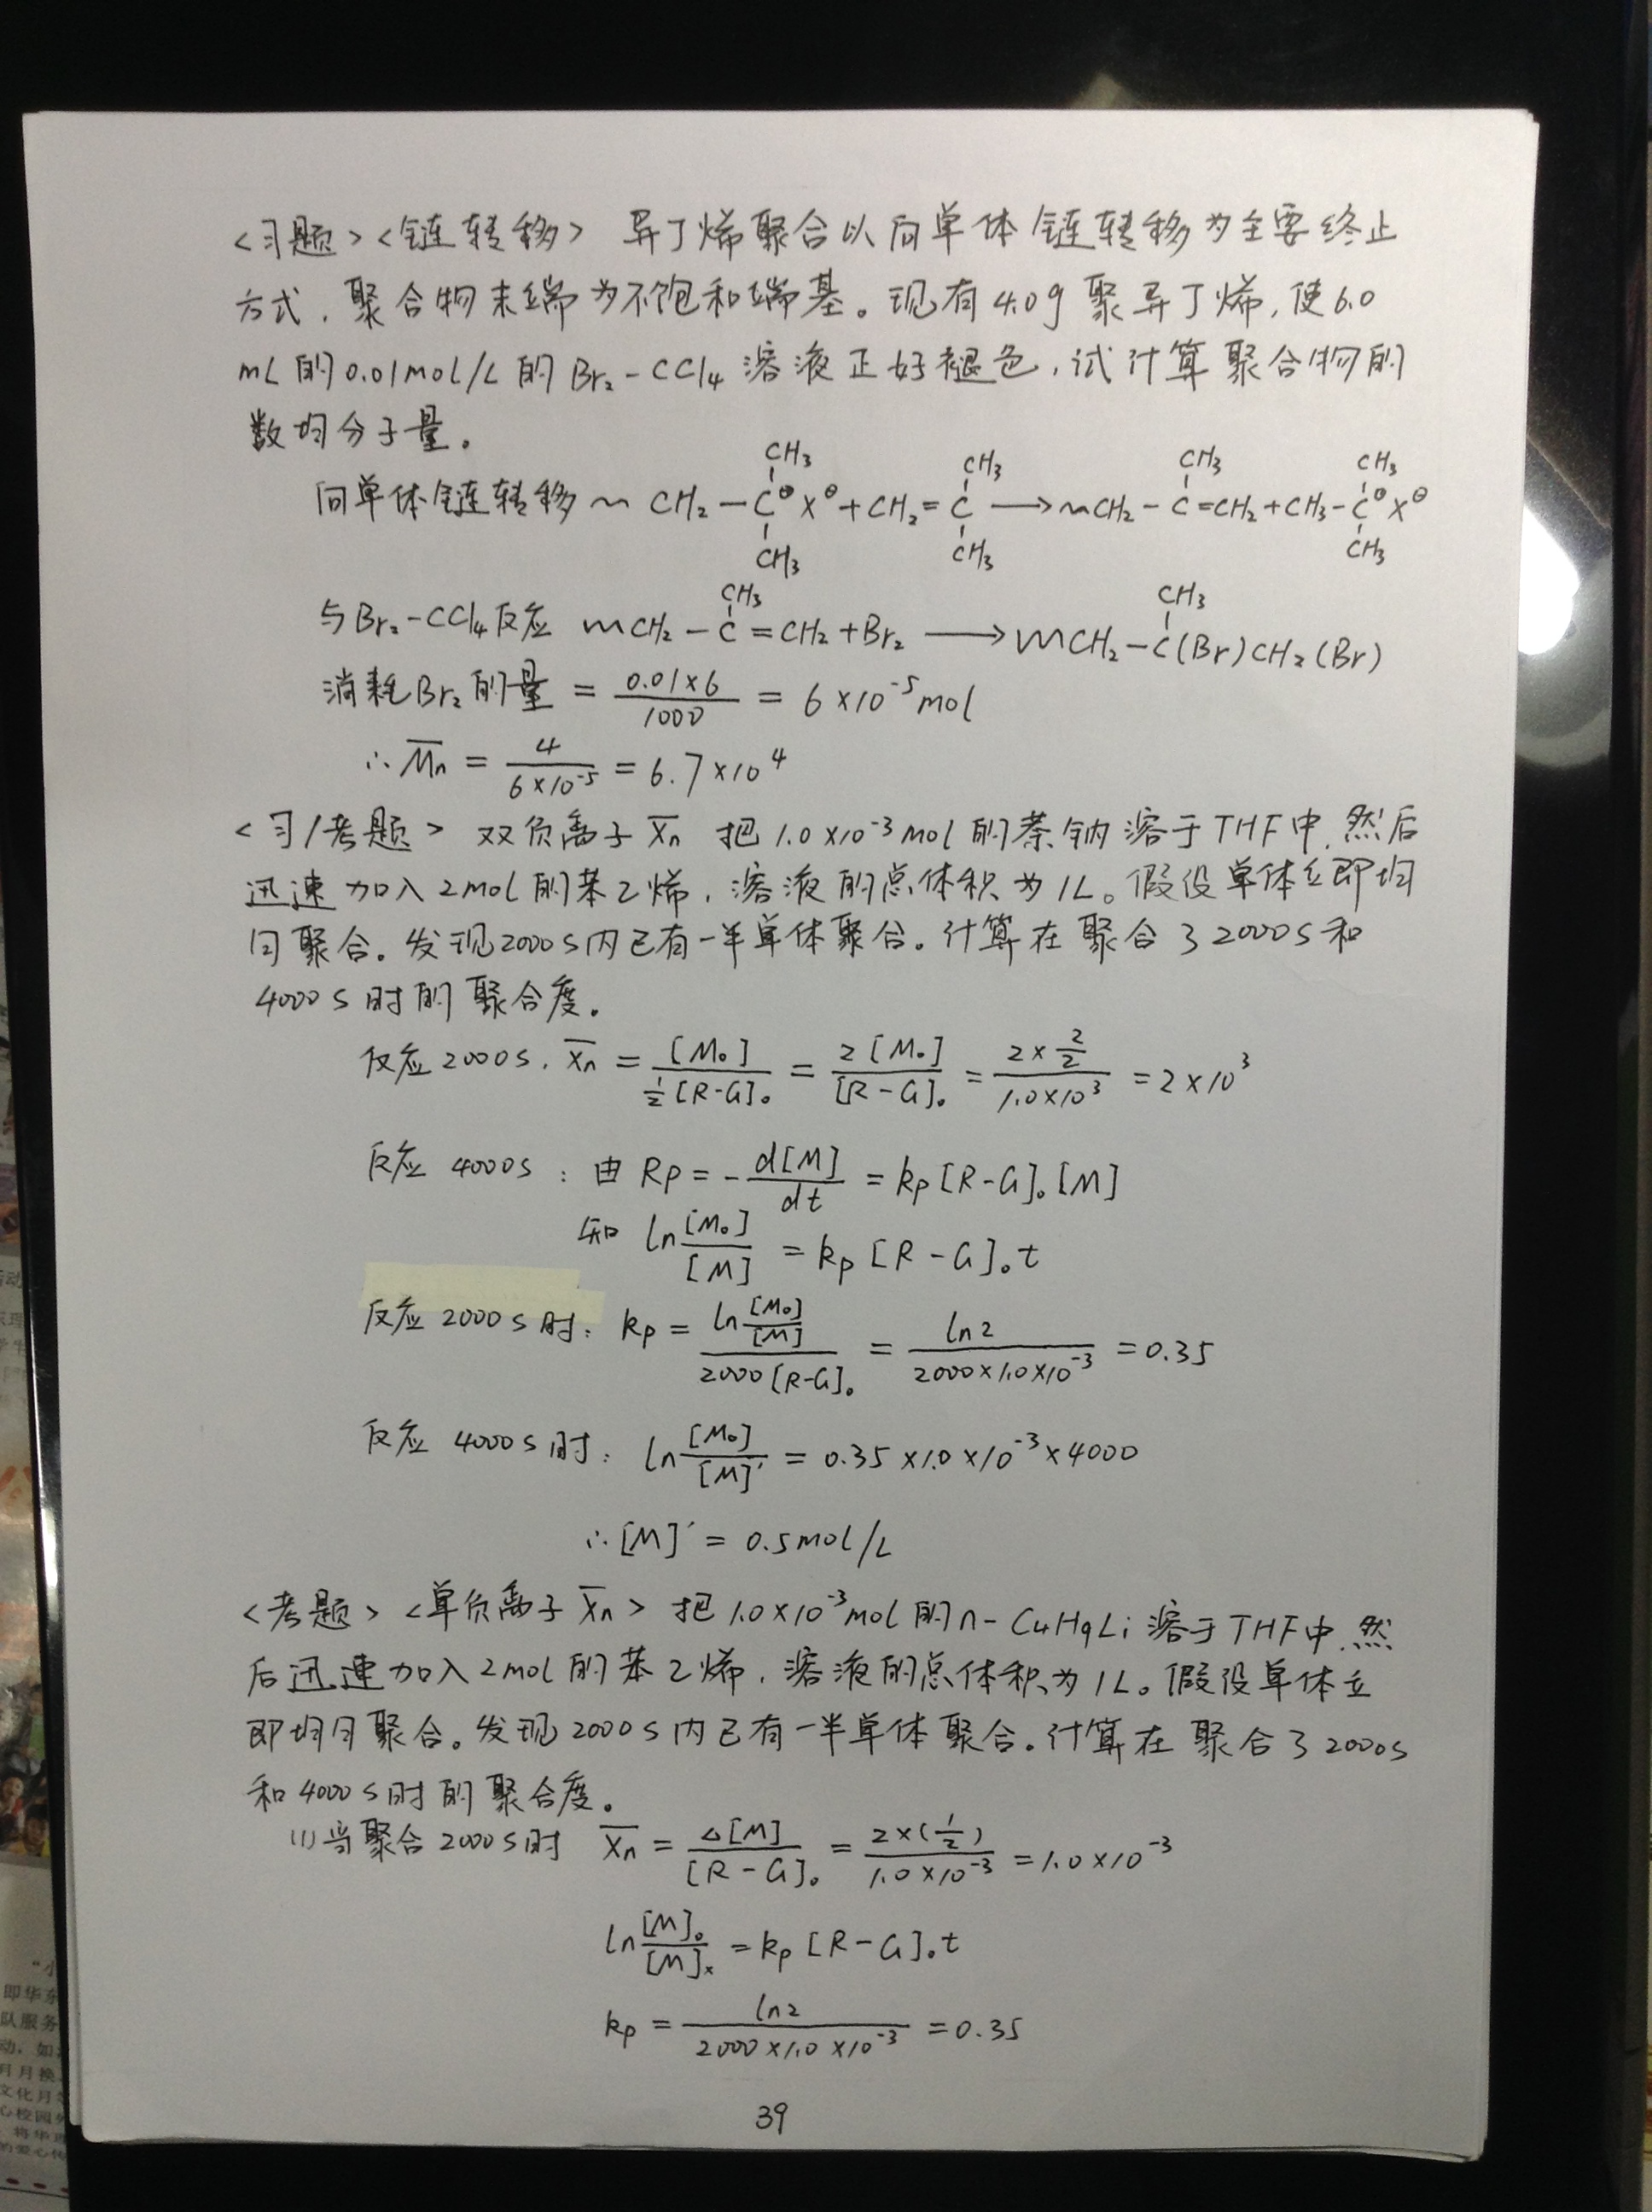 <习题><链转移> 异丁烯聚合以向单体链转移为主要终止
方式,聚合物末端为不饱和端基。现有4.0g聚异丁烯,使6.0
mL的0.01mol/L的Br₂-CCl₄溶液正好褪色,试计算聚合物的
数均分子量。
向单体链转移 ~CH₂-C(CH₃)(CH₃)⊕X⊖+CH₂=C(CH₃)(CH₃)⟶~CH₂-C(CH₃)=CH₂+CH₃-C(CH₃)(CH₃)⊕X⊖
与Br₂-CCl₄反应 ~CH₂-C(CH₃)=CH₂+Br₂⟶~CH₂-C(CH₃)(Br)CH₂(Br)
消耗Br₂的量 = 0.01×6/1000 = 6×10⁻⁵mol
∴M̅n = 4/6×10⁻⁵ = 6.7×10⁴
<习/考题> 双负离子X̅n 把1.0×10⁻³mol的萘钠溶于THF中,然后
迅速加入2mol的苯乙烯,溶液的总体积为1L。假设单体立即均
匀聚合。发现2000s内已有一半单体聚合。计算在聚合了2000s和
4000s时的聚合度。
反应2000s. X̅n = [M₀]/½[R-G]₀ = 2[M₀]/[R-G]₀ = 2×2/2/1.0×10³ = 2×10³
反应4000s:由Rp=-d[M]/dt = kp[R-G]₀[M]
和 ln[M₀]/[M] = kp[R-G]₀t
反应2000s时: kp = ln[M₀]/[M]/2000[R-G]₀ = ln2/2000×1.0×10⁻³ = 0.35
反应4000s时: ln[M₀]/[M]′ = 0.35×1.0×10⁻³×4000
∴[M]′ = 0.5mol/L
<考题><单负离子X̅n> 把1.0×10⁻³mol的n-C₄H₉Li溶于THF中,然
后迅速加入2mol的苯乙烯,溶液的总体积为1L。假设单体立
即均匀聚合。发现2000s内已有一半单体聚合。计算在聚合了2000s
和4000s时的聚合度。
(1)当聚合2000s时 X̅n = Δ[M]/[R-G]₀ = 2×(½)/1.0×10⁻³ = 1.0×10⁻³
ln[M]₀/[M]ₓ = kp[R-G]₀t
kp = ln2/2000×1.0×10⁻³ = 0.35
39
即华东
队服务